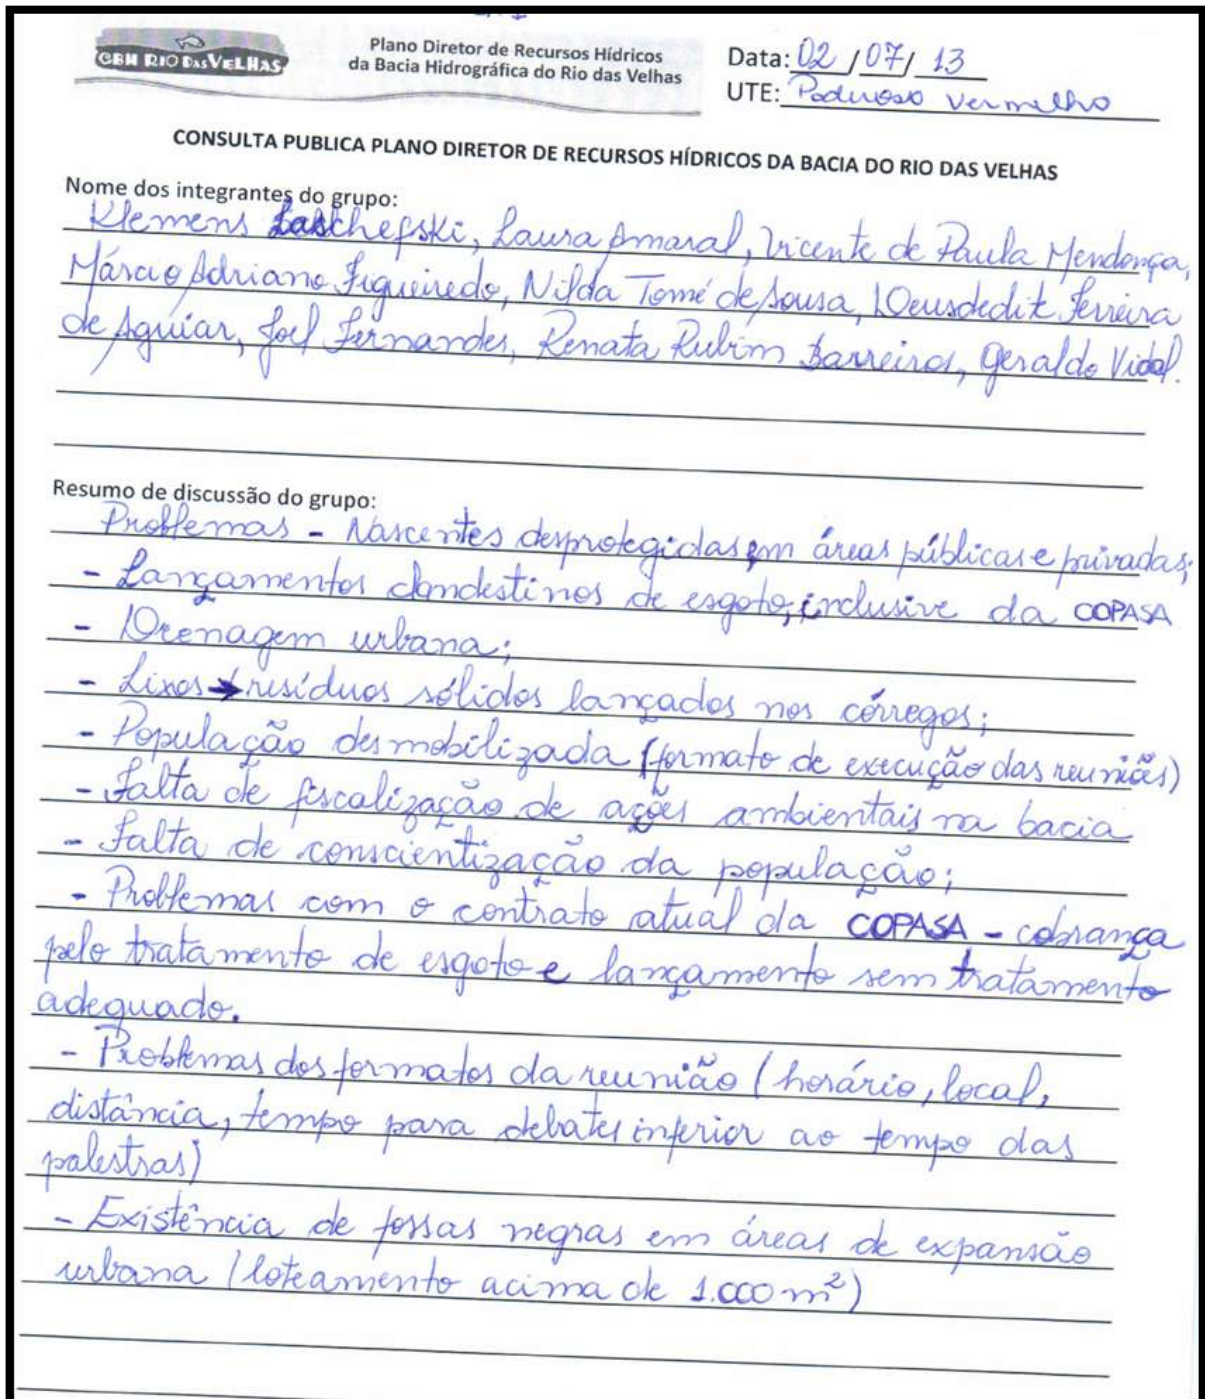 CBH RIO DAS VELHAS
Plano Diretor de Recursos Hídricos
da Bacia Hidrográfica do Rio das Velhas
Data: 02 / 07 / 13
UTE: Poderoso Vermelho
CONSULTA PUBLICA PLANO DIRETOR DE RECURSOS HÍDRICOS DA BACIA DO RIO DAS VELHAS
Nome dos integrantes do grupo:
Klemens Laschefski, Laura Amaral, Vicente de Paula Mendonça,
Márcio Adriano Figueiredo, Nilda Tomé de Sousa, Deusdedit Ferreira
de Aguiar, Joel Fernandes, Renata Rubim Barreiros, Geraldo Vidal.
Resumo de discussão do grupo:
Problemas - Nascentes desprotegidas em áreas públicas e privadas;
- Lançamentos clandestinos de esgoto, inclusive da COPASA
- Drenagem urbana;
- Lixos → resíduos sólidos lançados nos córregos;
- População desmobilizada (formato de execução das reuniões)
- Falta de fiscalização de ações ambientais na bacia
- Falta de conscientização da população;
- Problemas com o contrato atual da COPASA - cobrança
pelo tratamento de esgoto e lançamento sem tratamento
adequado.
- Problemas dos formatos da reunião (horário, local,
distância, tempo para debates inferior ao tempo das
palestras)
- Existência de fossas negras em áreas de expansão
urbana (loteamento acima de 1.000 m²)